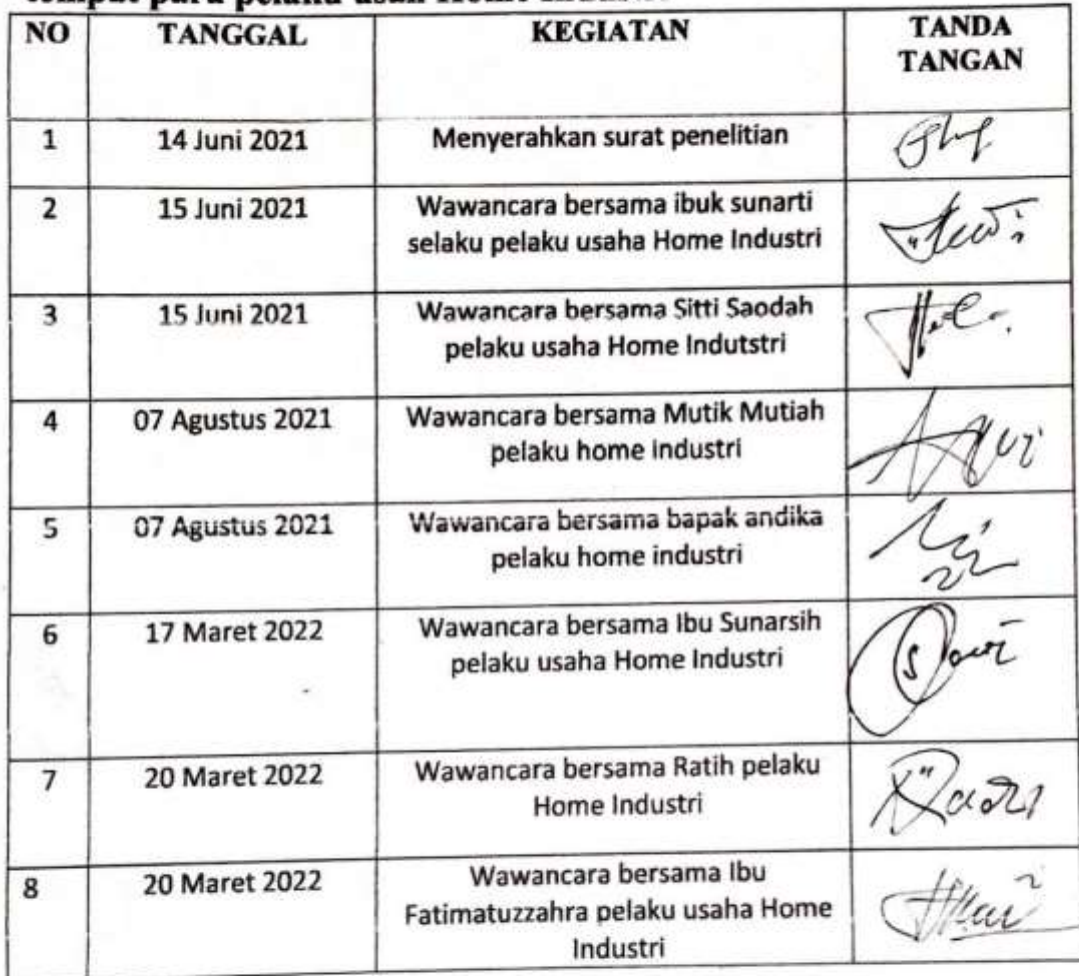 NO TANGGAL KEGIATAN TANDA
TANGAN
1 14 Juni 2021 Menyerahkan surat penelitian
2 15 Juni 2021 Wawancara bersama ibuk sunarti
selaku pelaku usaha Home Industri
3 15 Juni 2021 Wawancara bersama Sitti Saodah
pelaku usaha Home Indutstri
4 07 Agustus 2021 Wawancara bersama Mutik Mutiah
pelaku home industri
5 07 Agustus 2021 Wawancara bersama bapak andika
pelaku home industri
6 17 Maret 2022 Wawancara bersama Ibu Sunarsih
pelaku usaha Home Industri
7 20 Maret 2022 Wawancara bersama Ratih pelaku
Home Industri
8 20 Maret 2022 Wawancara bersama Ibu
Fatimatuzzahra pelaku usaha Home
Industri